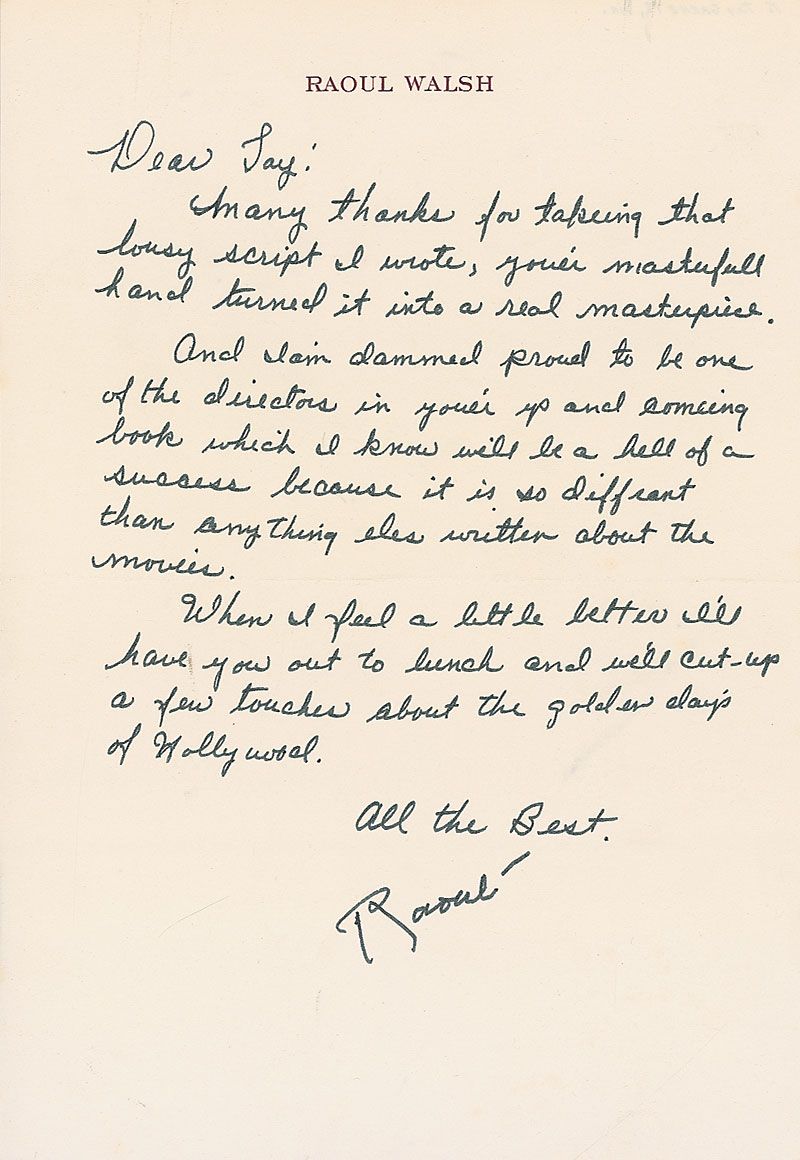 RAOUL WALSH
Dear Tay:
Many thanks for takeing that
lousy script I wrote, you'er masterfull
hand turned it into a real masterpiece.
And I'am dammed proud to be one
of the directors in you'er up and comeing
book which I know will be a hell of a
success because it is so diffrant
than anything eles written about the
movies.
When I feel a little better I'll
have you out to lunch and we'll cut-up
a few touches about the golden days
of Hollywood.
All the Best.
Raoul